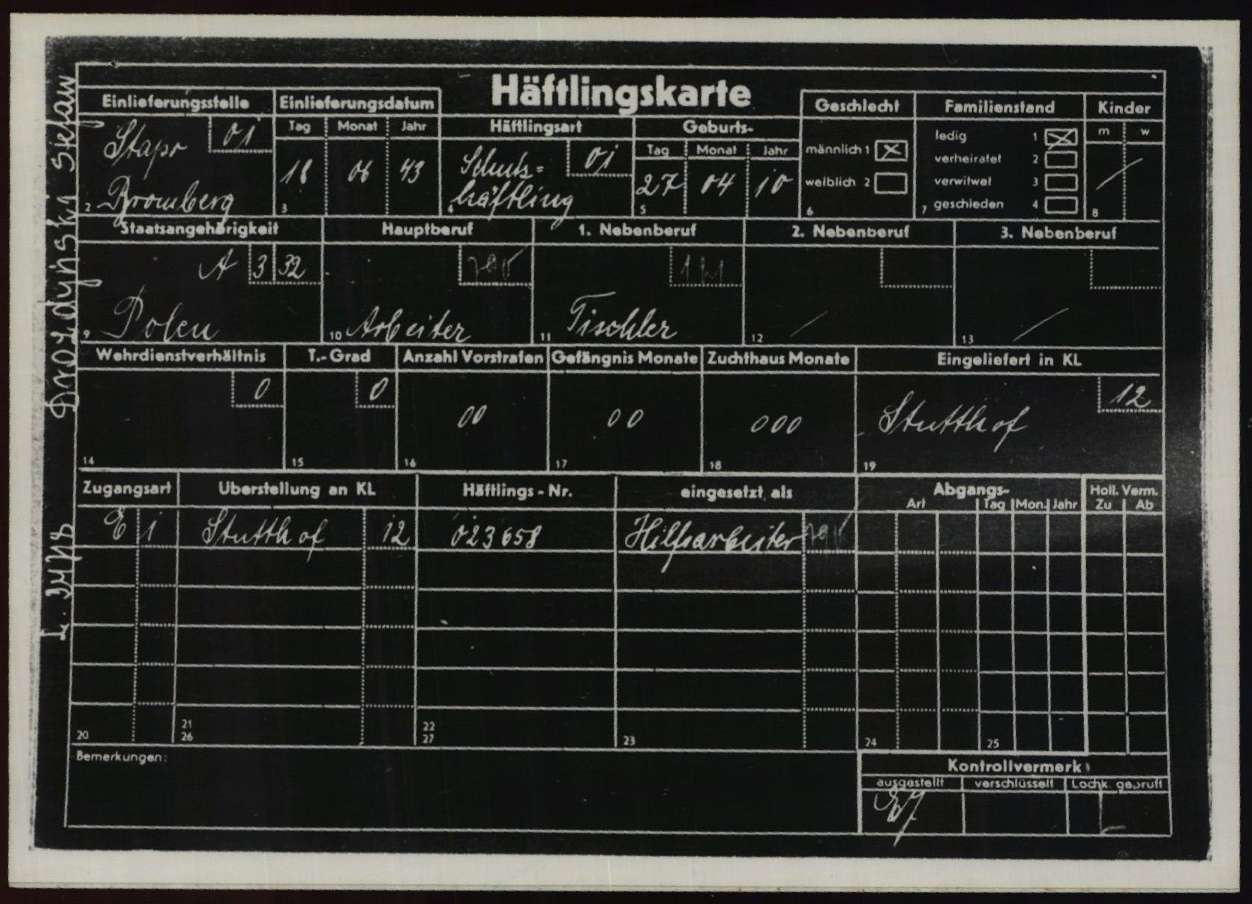 Häftlingskarte
Einlieferungsstelle
01
Stapo
Bromberg
2
Einlieferungsdatum
Tag Monat Jahr
18 06 43
3
Häftlingsart
01
Schutz=
häftling
4
Geburts-
Tag Monat Jahr
27 04 10
5
Geschlecht
männlich 1
weiblich 2
6
Familienstand
ledig 1
verheiratet 2
verwitwet 3
geschieden 4
7
Kinder
m w
8
Staatsangehörigkeit
A 3 32
Polen
9
Hauptberuf
10 Arbeiter
1. Nebenberuf
11 Tischler
2. Nebenberuf
12
3. Nebenberuf
13
Wehrdienstverhältnis
0
14
T.-Grad
0
15
Anzahl Vorstrafen
00
16
Gefängnis Monate
00
17
Zuchthaus Monate
000
18
Eingeliefert in KL
12
Stutthof
19
Zugangsart Überstellung an KL Häftlings-Nr. eingesetzt als Abgangs- Holl. Verm.
Art Tag Mon. Jahr Zu Ab
E 1 Stutthof 12 023658 Hilfsarbeiter
20 21 22 23 24 25
26 27
Bemerkungen:
Kontrollvermerk
ausgestellt verschlüsselt Lochk. geprüft
Drozdyński Stefan